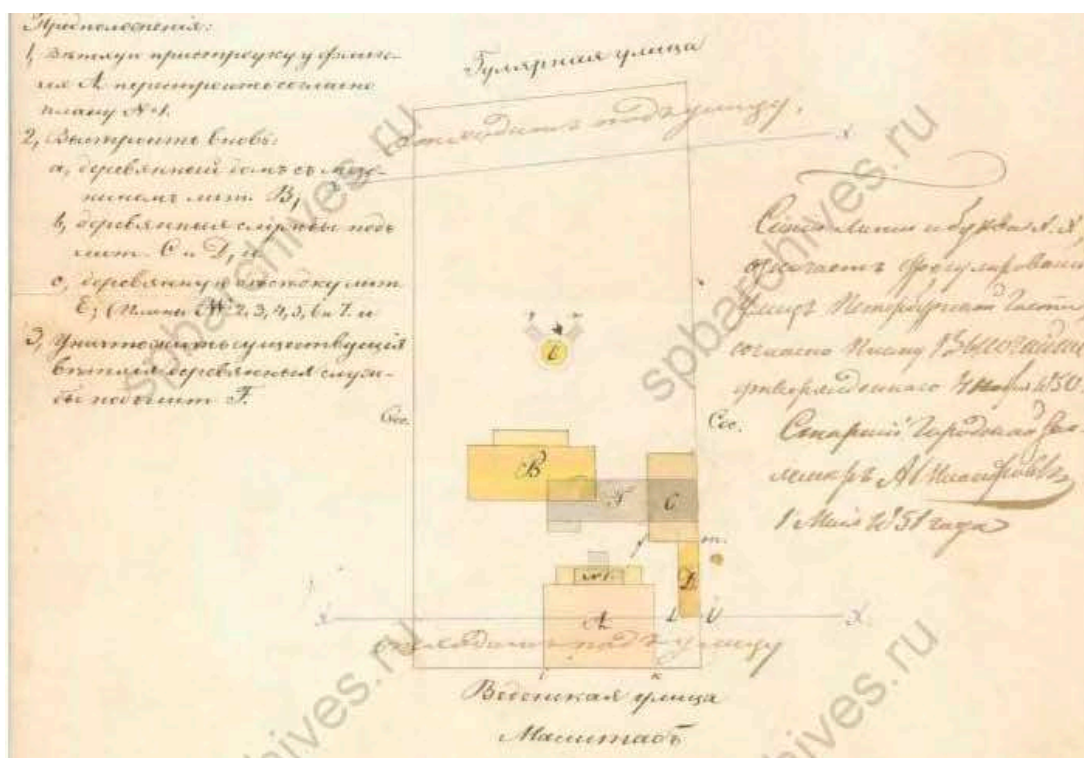 Предположенія:
1, Ветхую пристройку у флиге-
ля А перестроить согласно
плану №1.
2, Выстроить вновь:
а, деревянный домъ съ мезо-
ниномъ лит. В;
b, деревянныя службы подъ
лит. С и D, и
с, деревянную бесѣдку лит.
Е; (Планы №: 2, 3, 4, 5, 6 и 7. и
3, Уничтожить существующія
ветхія деревянныя служ-
бы подъ лит F.
Гулярная улица
отходитъ подъ улицу.
X
Е
Сос.
Сос.
B
F
C
m.
f
№1.
D
A
L
X
X.
отходитъ подъ улицу
i
к
Веденская улица
Масштабъ
Синія линіи и буква X. X,
означаетъ урегулированіе
улицъ Петербургской Части
согласно Плану Высочайше
утвержденнаго
Старшій Городской Зем-
лемѣръ А
1 Мая 1851 года
spbarchives.ru
spbarchives.ru
spbarchives.ru
spbarchives.ru